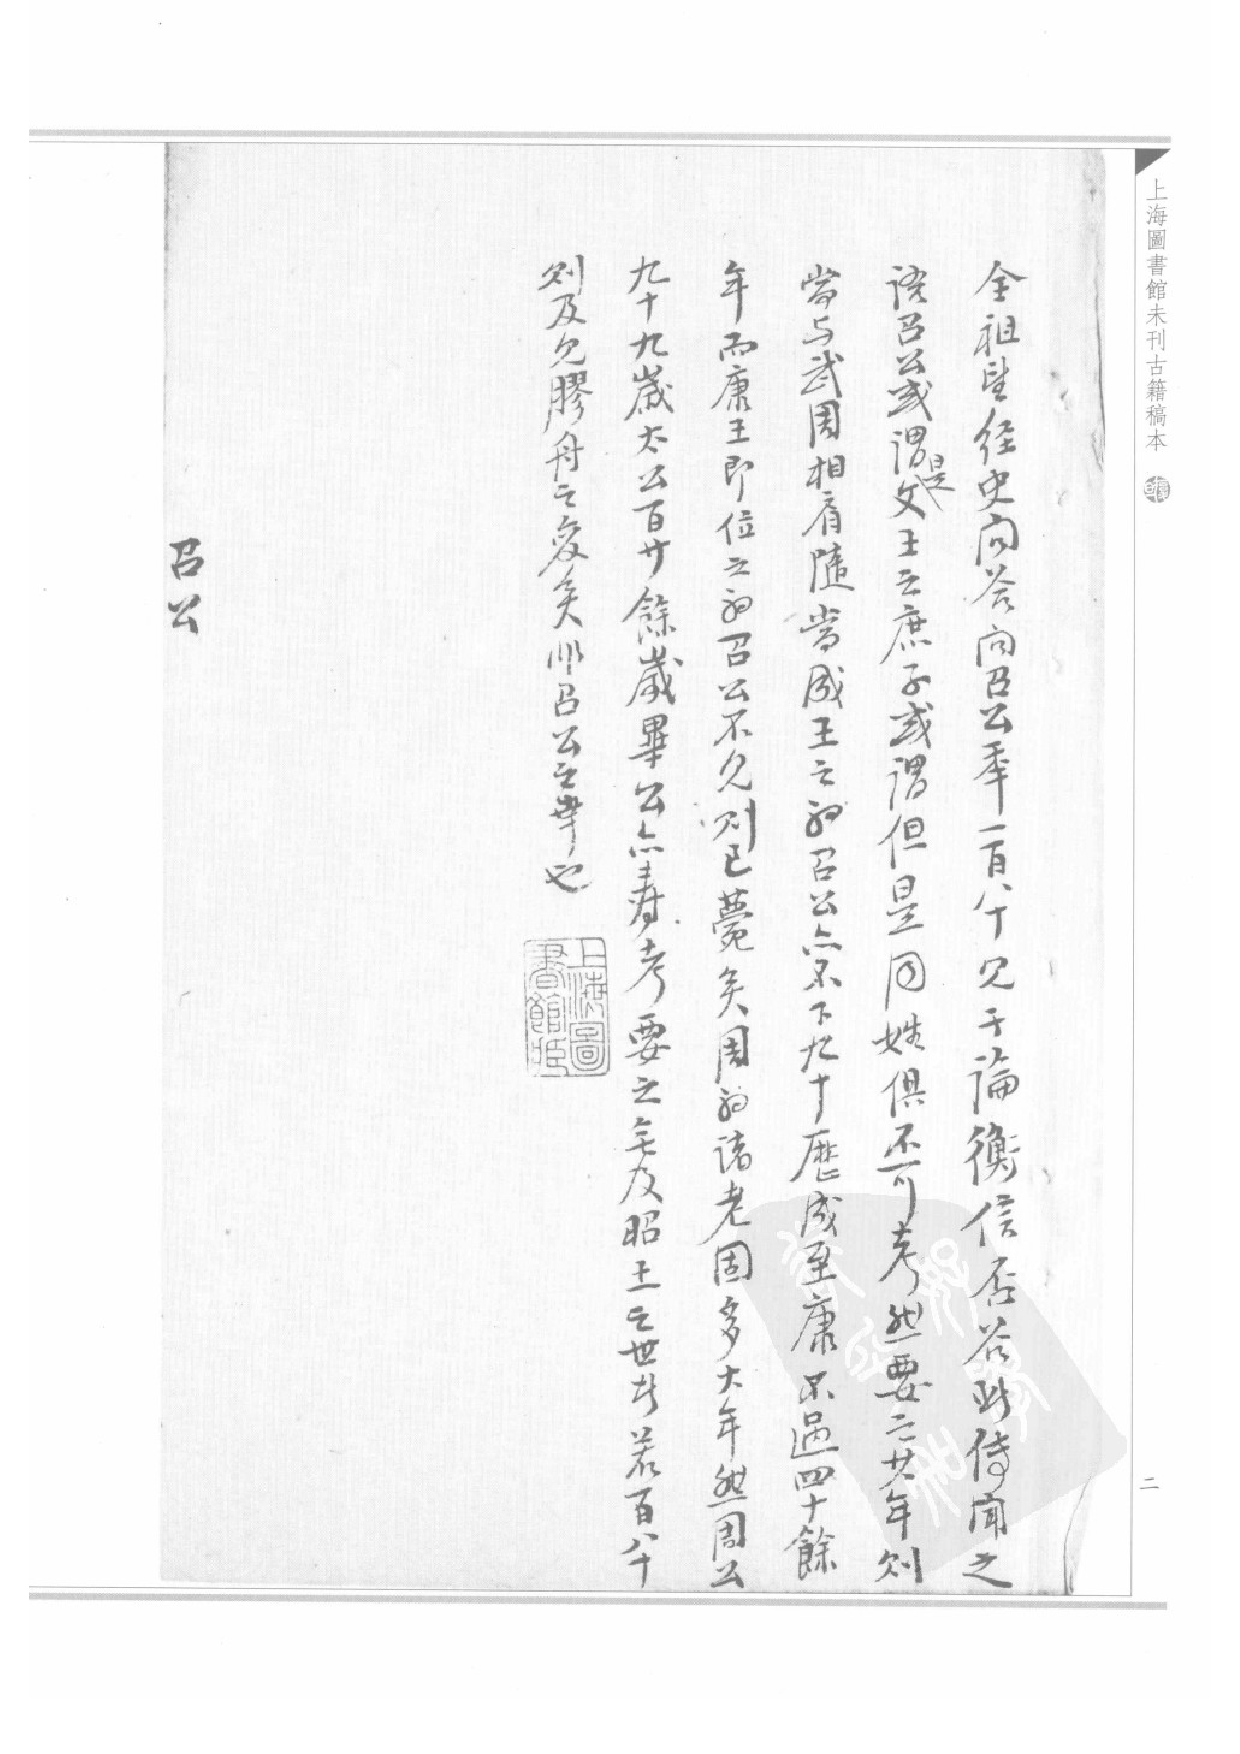 上海圖書館未刊古籍稿本
二
全祖望經史问答问召公年一百八十见于論衡信否答此傳聞之
語召公或謂是文王之庶子或謂但是同姓俱不可考然要之其年则
當与武周相肩隨當成王之初召公亦不下九十歷成至康不過四十餘
年而康王即位之初召公不见则已薨矣周初諸老固多大年然周公
九十九歲太公百廿餘歲畢公亦壽考要之無及昭王之世者若百八十
则及见膠舟之變矣非召公之幸也
上海圖書館藏
召公